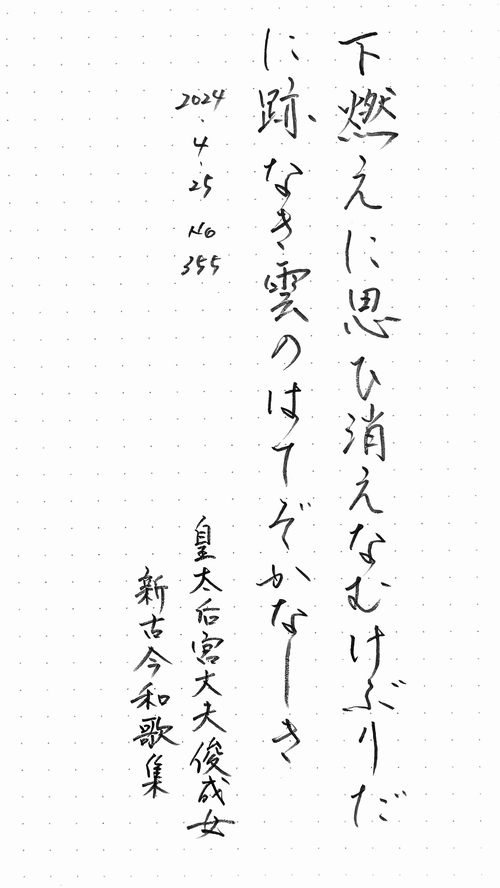 下燃えに思ひ消えなむけぶりだ
に跡なき雲のはてぞかなしき
2024.4.25 No 355
皇太后宮大夫俊成女
新古今和歌集